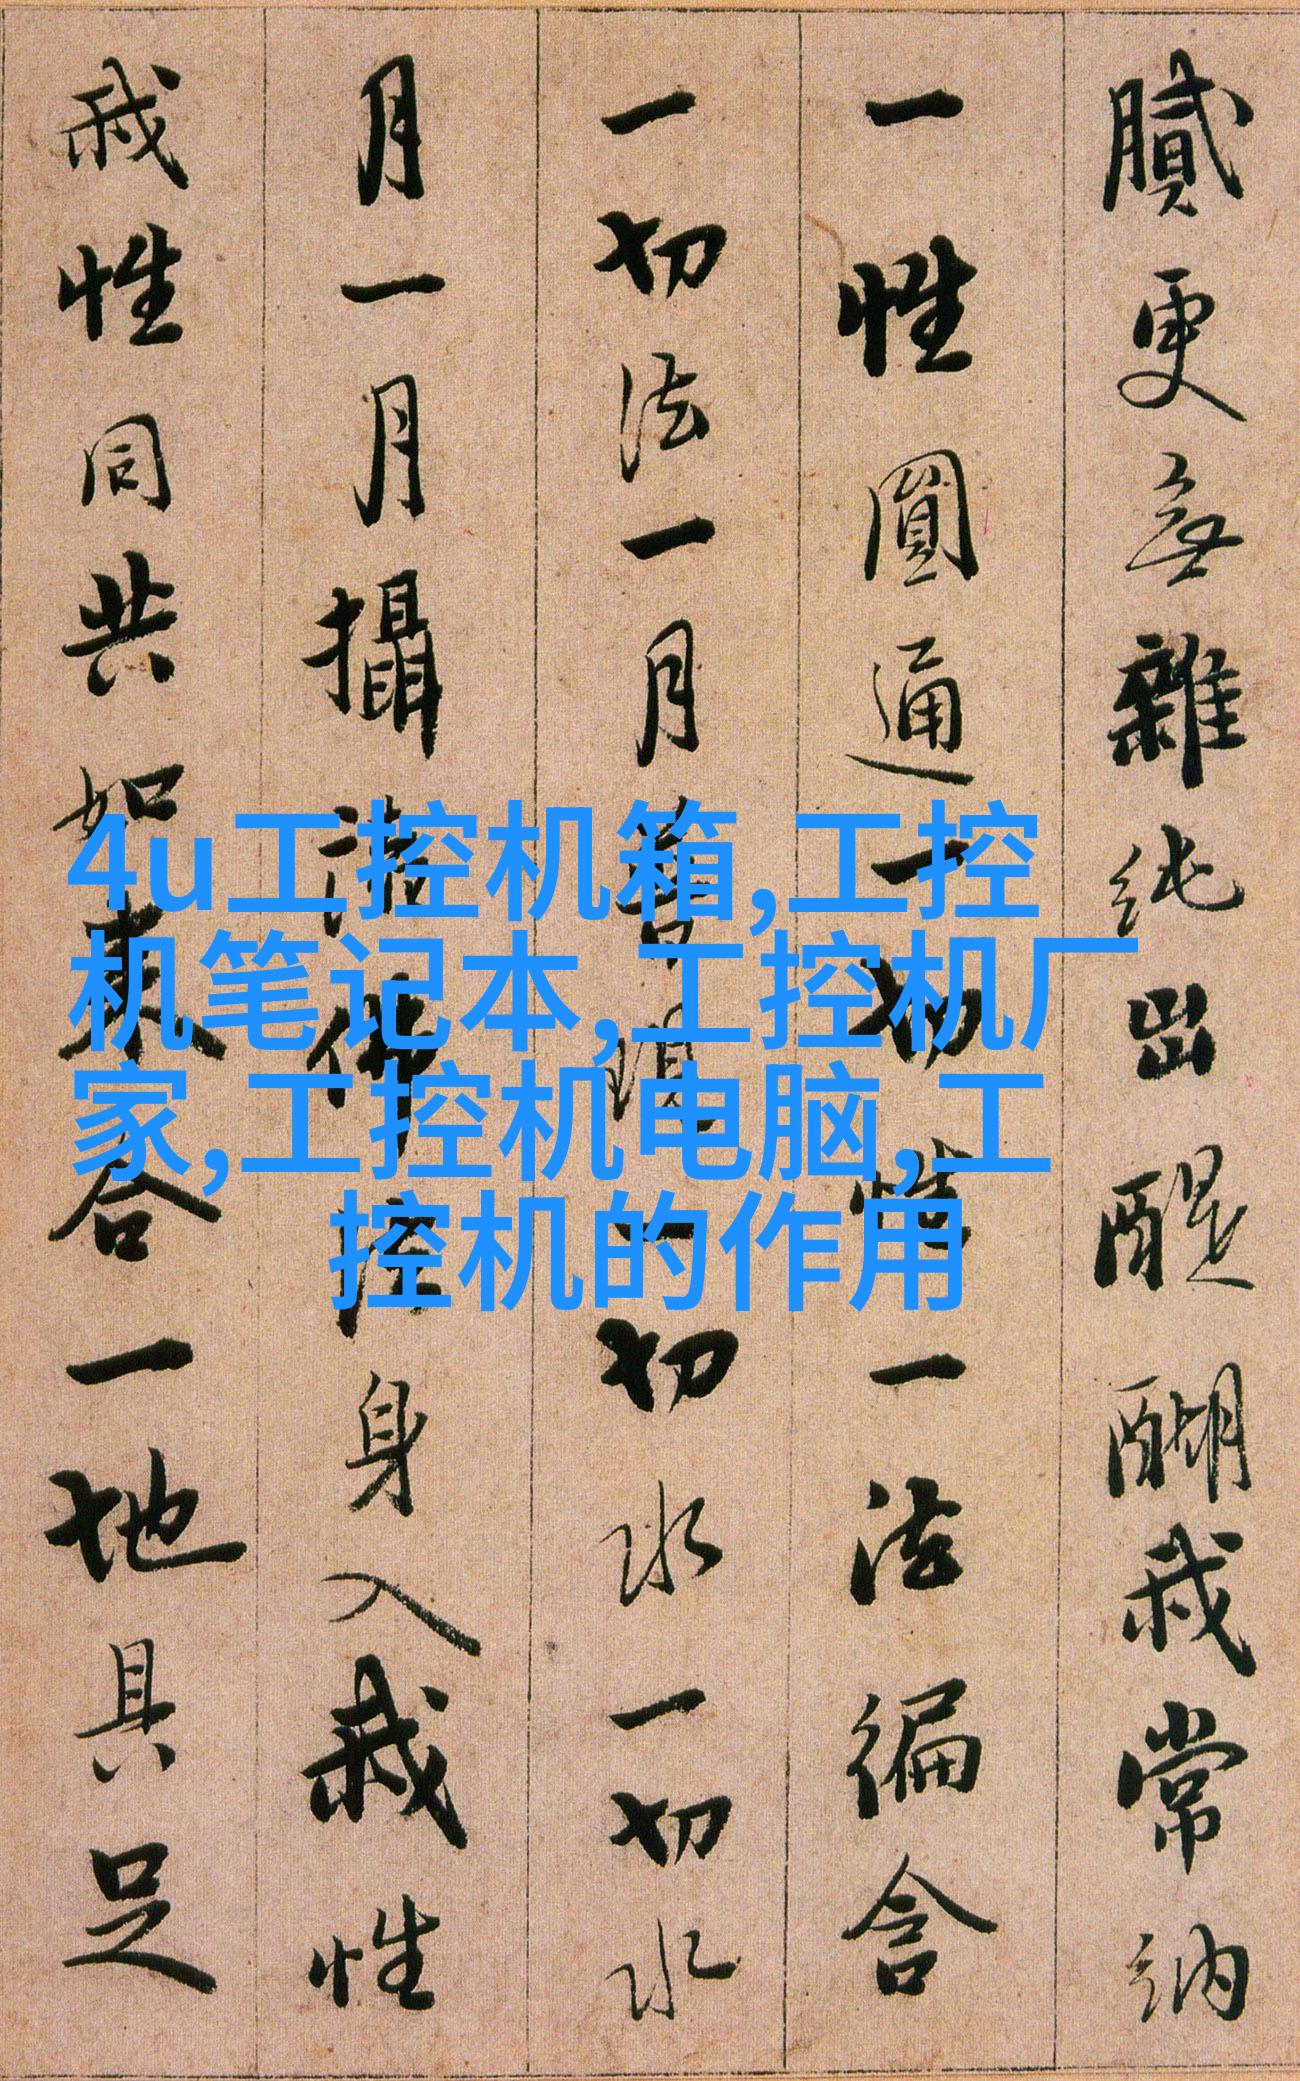 膩更無雜純出醍醐我常納
一性圓通一切性一法徧含
一切法一月普現一切水一切水
月一月攝諸佛法身入我性
我性同共如來合一地具足
4u工控机箱,工控
机笔记本,工控机厂
家,工控机电脑,工
控机的作用